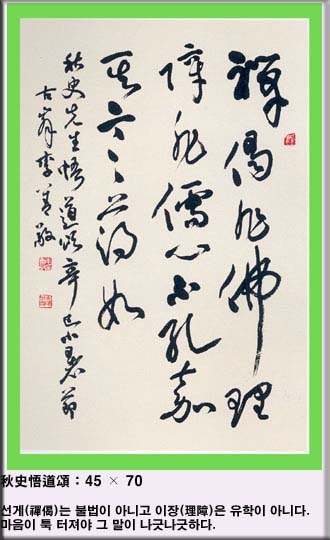 禪偈非佛理
障非儒心孔嘉
其言如
秋史先生悟道頌 辛巳小暑節
古峯李善敬
秋史悟道頌 : 45 × 70
선게(禪偈)는 불법이 아니고 이장(理障)은 유학이 아니다.
마음이 툭 터져야 그 말이 나긋나긋하다.